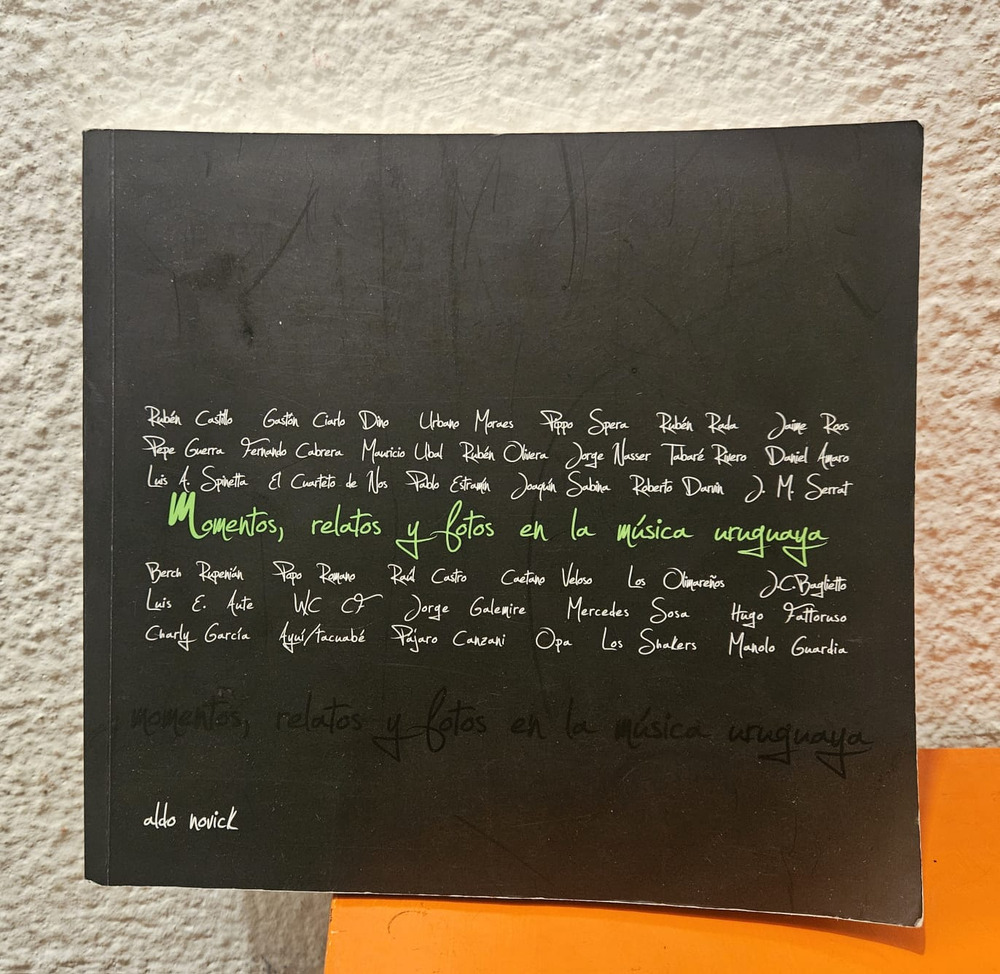 Rubén Castillo Gastón Ciarlo Dino Urbano Moraes Pippo Spera Rubén Rada Jaime Roos
Pepe Guerra Fernando Cabrera Mauricio Ubal Rubén Olivera Jorge Nasser Tabaré Rivero Daniel Amaro
Luis A. Spinetta El Cuarteto de Nos Pablo Estramín Joaquín Sabina Roberto Darvin J. M. Serrat
Momentos, relatos y fotos en la música uruguaya
Berch Rupenián Papo Romano Raúl Castro Caetano Veloso Los Olimareños J.C.Baglietto
Luis E. Aute WC Jorge Galemire Mercedes Sosa Hugo Fattoruso
Charly García Ayuí/tacuabé Pájaro Canzani Opa Los Shakers Manolo Guardia
momentos, relatos y fotos en la música uruguaya
aldo novick